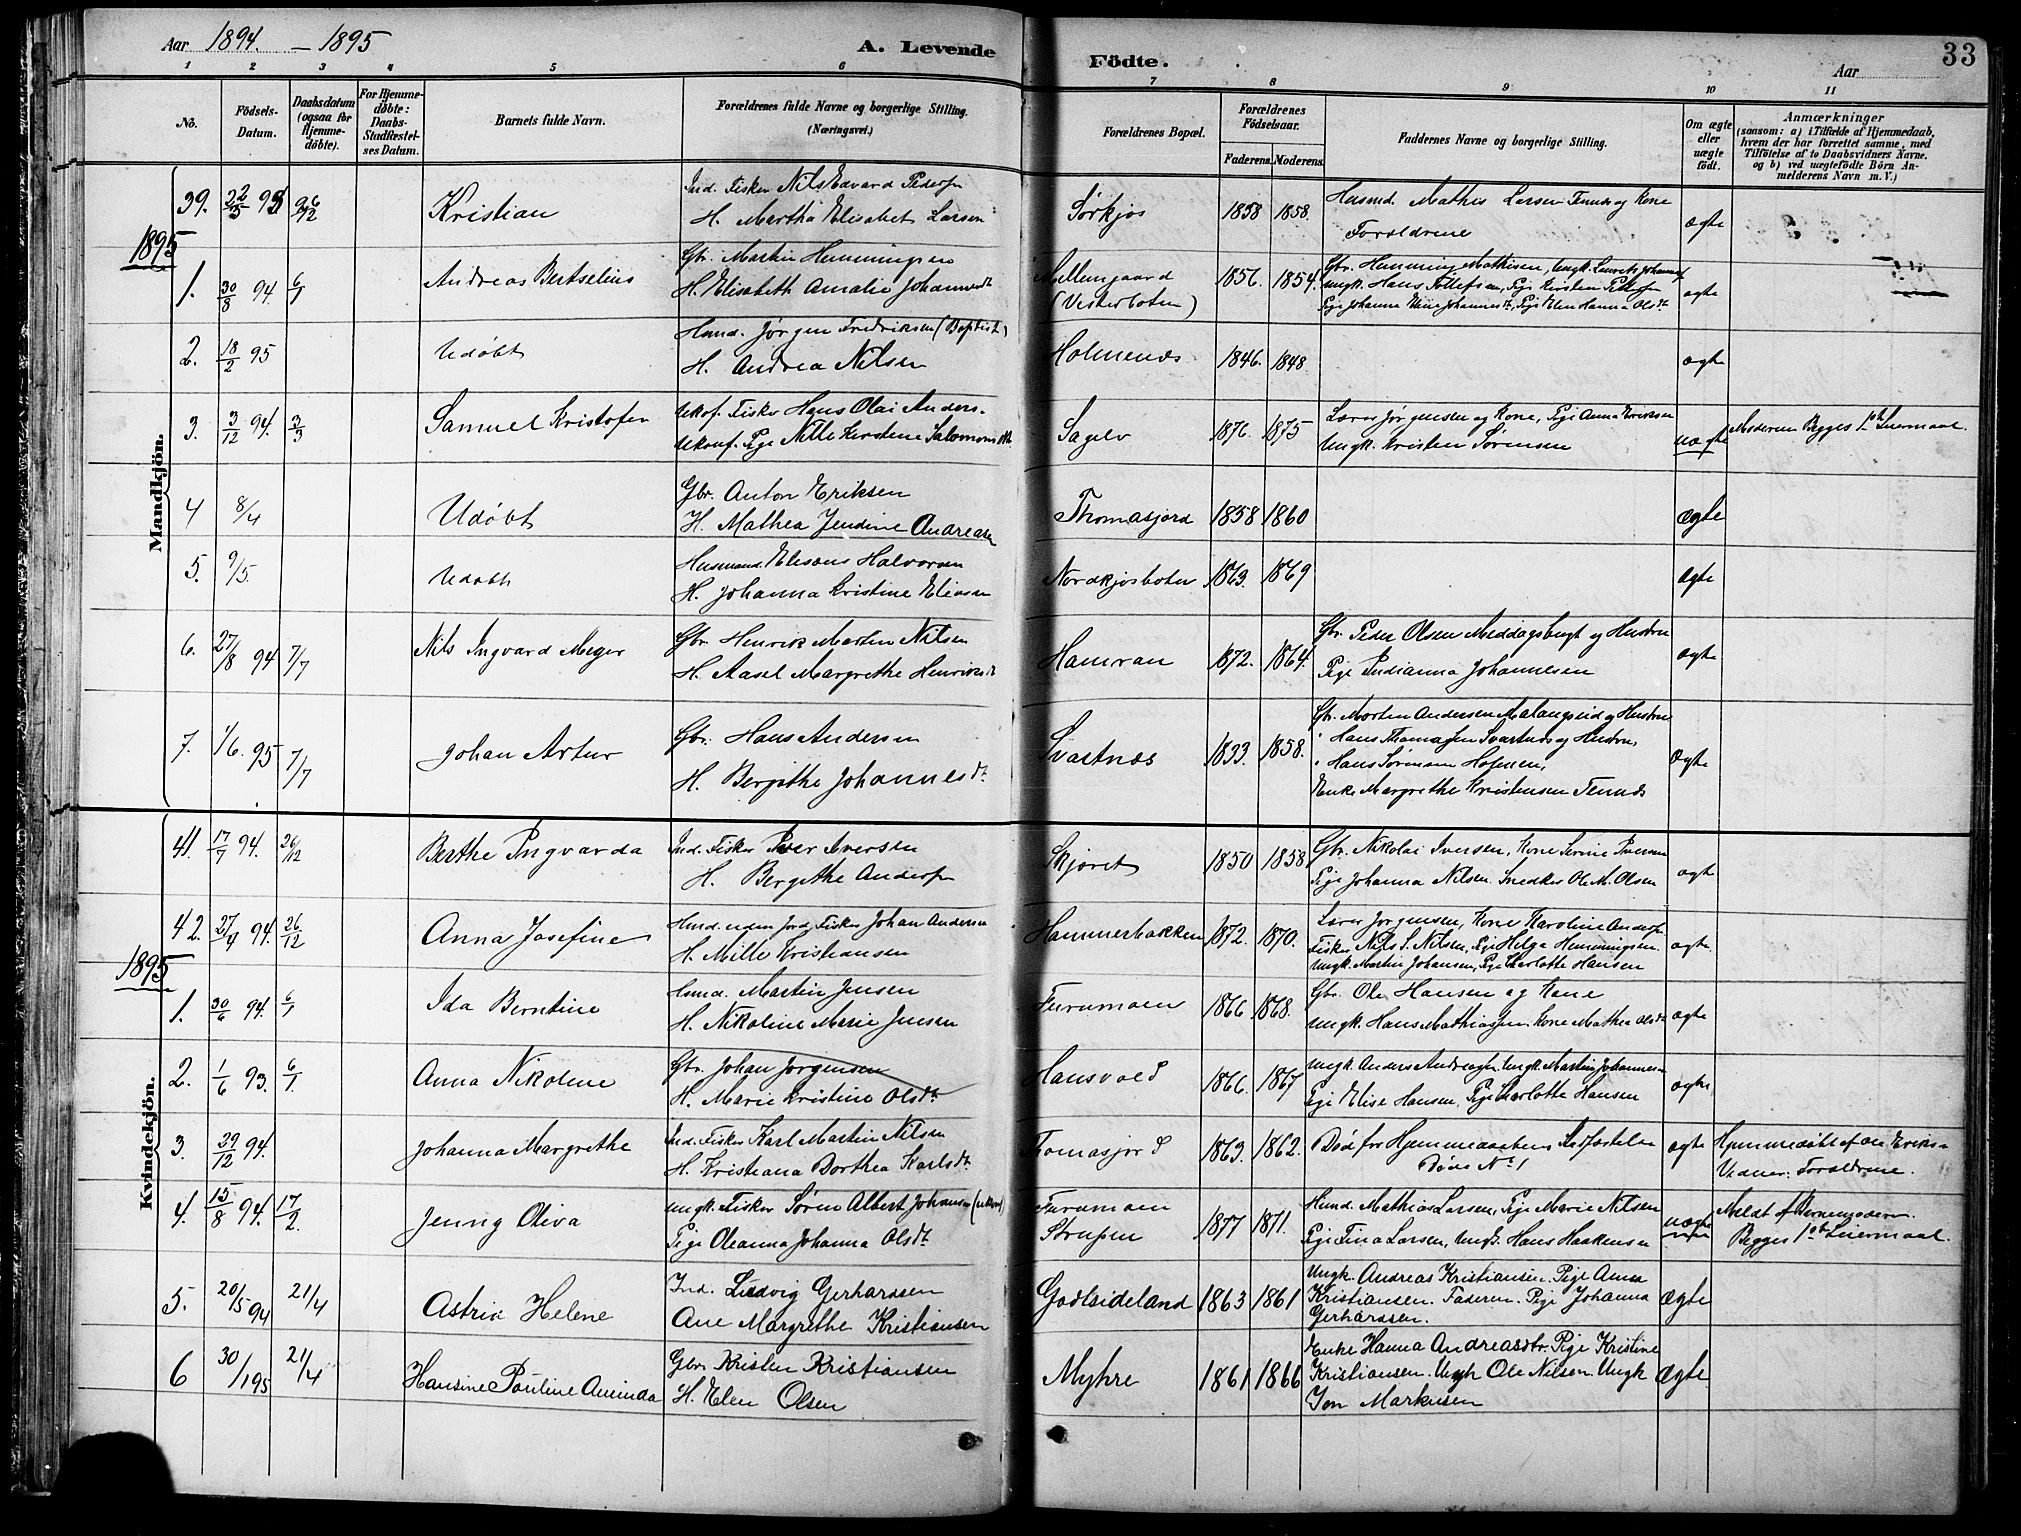 Aar 1894. – 1895
A. Levende
Födte.
Aar
33
1 2 3 4 5 6 7 8 9 10 11
No.
Födsels-
Datum.
Daabsdatum
(ogsaa for
Hjemme-
döbte).
For Hjemme-
döbte:
Daabs-
Stadfæstel-
ses Datum.
Barnets fulde Navn.
Forældrenes fulde Navne og borgerlige Stilling.
(Næringsvei.)
Forældrenes Bopæl.
Forældrenes
Födselsaar.
Faderens. Moderens.
Faddernes Navne og borgerlige Stilling.
Om ægte
eller
uægte
födt.
Anmærkninger
(saasom: a) i Tilfælde af Hjemmedaab,
hvem der har forrettet samme, med
Tilföielse af to Daabsvidners Navne.
og b) ved uægtefödte Börn An-
melderens Navn m. V.)
Mandkjön.
39. 26/12 Kristian
Ind. Fisker Nils Edvard Peders.
H. Martha Elisabet Larsen
Sørkjos 1858 1858.
Husmd. Mathis Larsen Tennes og Kone
Forældrene
ægte
1895
1. 30/8 94. 6/1 Andreas Bertselius
Gbr. Martin Hemmingsen
H. Elisabeth Amalie Johannesdt
Mellemgaard
(Vesterbotn)
1856. 1854.
Gbr. Hemming Mathisen, Ungk. Laurits Johannes.
Ungk. Hans Tollefsen, Pige Kirsten Peders.
Pige Johanna Johannesdt, Pige Elen Hanna Olsdt
ægte
2. 18/2 95 Udøbt
Hmd. Jørgen Fredriksen (Baptist)
H. Andrea Nilsen
Holmenes 1846. 1848 ægte
3. 3/12 94. 3/3 Samuel Kristofer
Ukof. Fisker Hans Olai Anders.
Ukonf. Pige Nille Kirstine Salomonsdt
Sagelv 1876. 1875
Lærer Jørgensen og Kone, Pige Anna Eriksen
Ungk. Kristen Sørensen
uægte
Moderen Begges 1ste Leiermaal.
4 8/4 Udøbt
Gbr. Anton Eriksen
H. Mathea Jendine Andreasen
Thomasjord 1858 1860 Ægte
5. 9/5. Udøbt
Husmand Elisæus Halvorsen
H. Johanna Kristine Eliasen
Nordkjosbotn 1863. 1869 Ægte
6. 27/8 94 7/7 Nils Ingvard Meyer
Gbr. Henrik Martin Nilsen
H. Aasel Margrethe Henriksdt
Hamvan 1872. 1864.
Gbr. Peder Olsen Meddagsbugt og Hustru
Pige Indianna Johannesen
ægte
7. 1/6. 95 7/7 Johan Artur
Gbr. Hans Andersen
H. Bergithe Johannesdt.
Svartnes 1833. 1858.
Gbr. Morten Andersen Malangseid og Hustru
" Hans Thomassen Svartnes og Hustru,
" Hans Sørensen Holmen,
Enke Margrethe Kristensen Tennes
Ægte
Kvindekjön.
41. 17/7 94. 26/12 Berthe Ingvarda
Ind. Fisker Iver Iversen
H. Bergithe Anders.
Skjæret 1850 1858
Gbr. Nikolai Iversen, Kone Serine Iversen
Pige Johanna Nilsen. Snedker Ole M. Olsen
ægte
42. 27/4 94. 26/12 Anna Josefine
Hmd. uden Jord, Fisker Johan Andersen
H. Mille Kristiansen
Hammerbakken 1872. 1870.
Lærer Jørgensen, Kone Karoline Anders.
Fisker Nils S. Nilsen, Pige Helga Hemmingsen.
Ungk. Martin Johansen, Pige Charlotte Hansen
ægte.
1895
1. 30/6 94. 6/1 Ida Berntine
Hsmd. Martin Jensen
H. Nikoline Marie Jensen
Furumoen 1866 1868.
Gbr. Ole Hansen og Kone
Ungk. Hans Mathiassen. Kone Mathea Olsdt
ægte
2. 1/6 93. 6/1 Anna Nikoline
Gbr. Johan Jørgensen
H. Marie Kristine Olsdt.
Hansvold 1866. 1867
Ungk. Anders Andreas. Ungk. Martin Johannesen
Pige Elise Hansen, Pige Charlotte Hansen
ægte
3. 29/12 94. Johanna Margrethe
Ind. Fisker Karl Martin Nilsen
H. Kristiana Dorthea Karlsdt.
Thomasjord 1863. 1862.
Død før Hjemmedaabens Stadfæstelse
Døde No 1
ægte
Hjemmedøbt af Ole Eriksen
Vidner: Forældrene.
4. 15/8 94. 17/2. Jenny Oliva
Ungk. Fisker Søren Albert Johansen (ukonf)
Pige Oleanna Johanna Olsdt.
Furumoen
Strupen
1877 1871.
Hsmd. Mathias Larsen, Pige Marie Nilsen
Pige Fina Larsen, Ungk. Hans Haakensen
uægte
Meldt af Barnemoderen.
Begges 1ste Leiermaal.
5. 20/5 94 21/4 Astrid Helene
Ind. Ludvig Gerhardsen
Ane Margrethe Kristiansen
Godlsideland 1863 1861
Ungk. Andreas Kristiansen. Pige Anna
Kristiansen. Faderen. Pige Johanna
Gerhardsen.
Ægte
6 30/1 95 21/4 Hansine Pauline Aminda
Gbr. Kristen Kristiansen
H. Elen Olsen
Myhre 1861 1866
Enke Hanna Andreasdtr. Pige Kristine
Kristiansen. Ungk Ole Nilsen. Ungk
Jon Markusen
Ægte